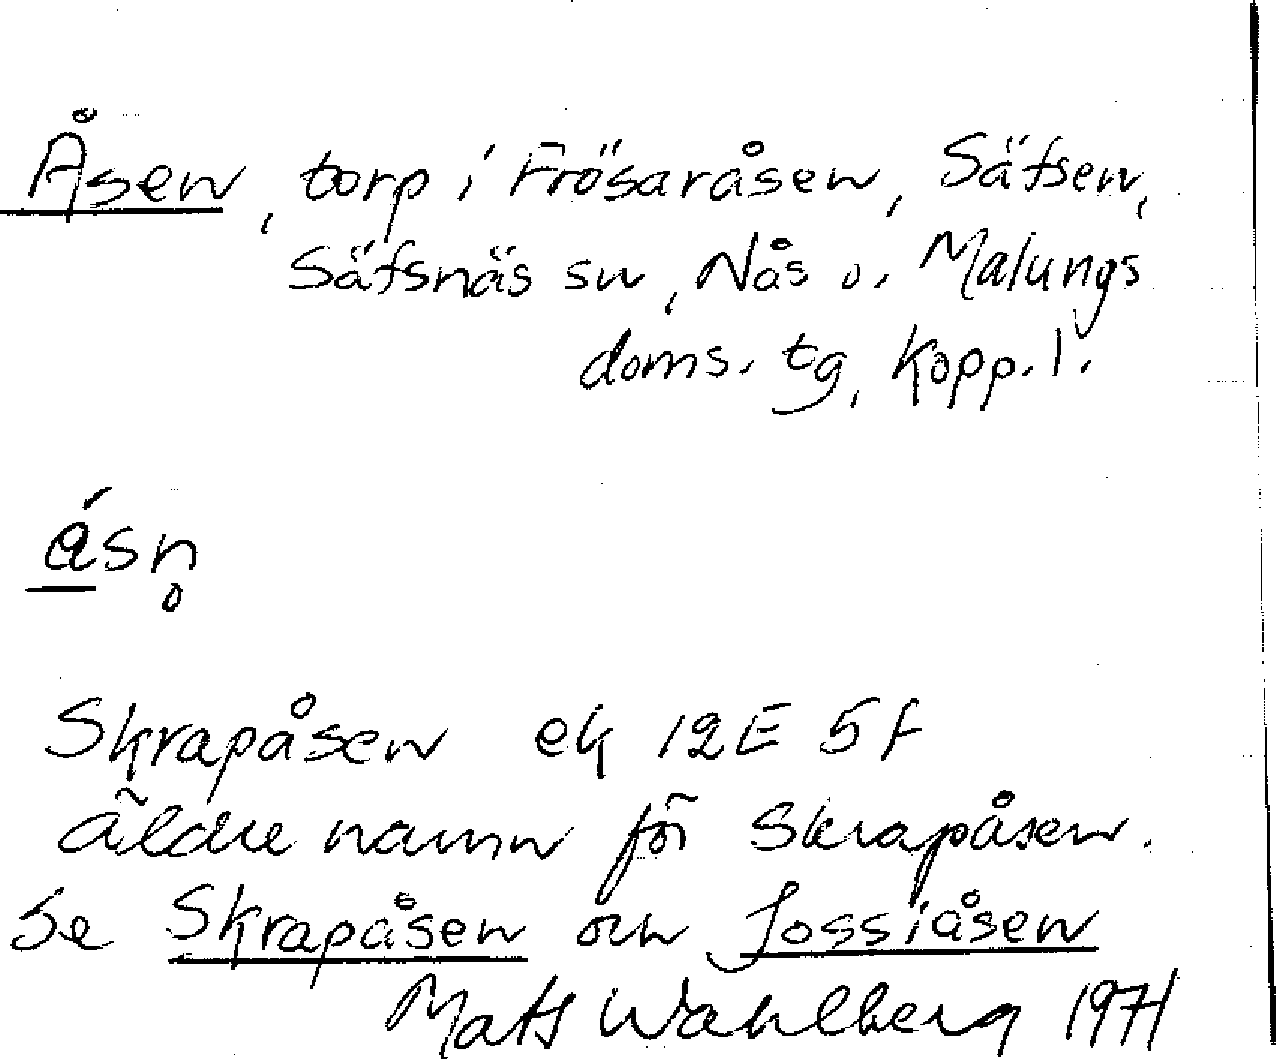 Åsen, torp i Frösaråsen, Säfsen,
Säfsnäs sn, Nås o. Malungs
doms. tg, Kopp. l.
ásn̥
Skrapåsen ek 12E 5f
äldre namn för Skrapåsen.
Se Skrapåsen och Jossiåsen
Mats Wahlberg 1971